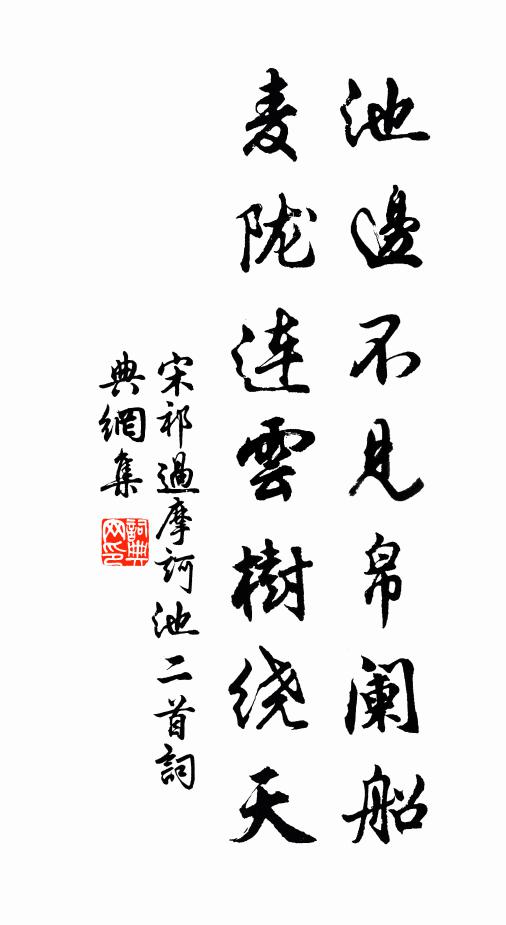 池邊不見帛阑船
麦陇連雲樹绕天
宋祁過摩訶池二首詞
典網集
詞典
网印